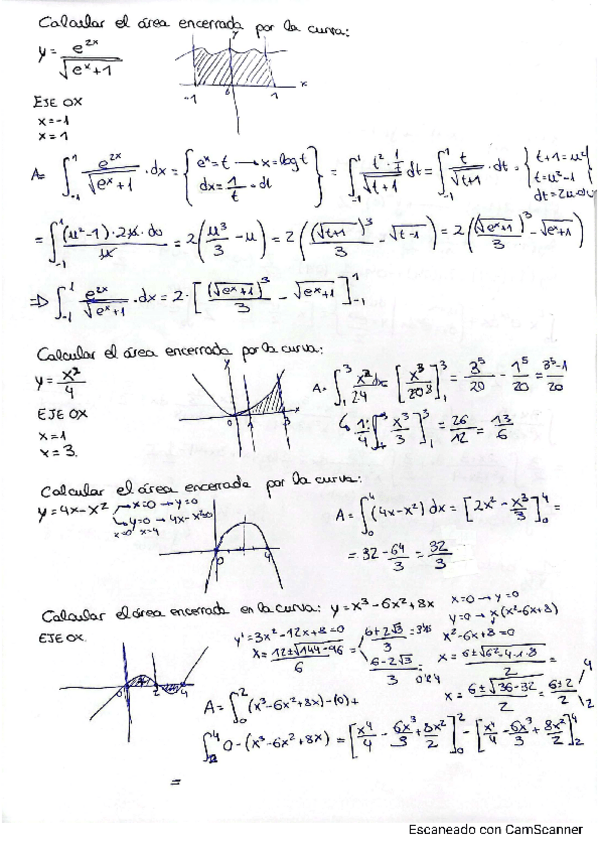 Calcular el área encerrada por la curva:
y = e^{2x} / √(e^x+1)
EJE OX
x=-1
x=1
y
x
-1 0 1
A= ∫_{-1}^{1} e^{2x}/√(e^x+1) · dx = { e^x=t → x=log t ; dx= 1/t · dt } = ∫_{-1}^{1} (t² · 1/t)/√(t+1) dt = ∫_{-1}^{1} t/√(t+1) · dt = { t+1=u² ; t=u²-1 ; dt=2u·du
= ∫_{-1}^{1} (u²-1)·2u·du / u = 2(u³/3 - u) = 2((√(t+1))³/3 - √(t-1)) = 2((√(e^x+1))³/3 - √(e^x+1))
⇒ ∫_{-1}^{1} e^{2x}/√(e^x+1) · dx = 2·[(√(e^x+1))³/3 - √(e^x+1)]_{-1}^{1}
Calcular el área encerrada por la curva:
y = x²/4
EJE OX
x=1
x=3.
y
x
0 1 3
= 3^5/20 - 1^5/20 = (3^5-1)/20
[x³/3]_1^3 = 26/12 = 13/6
Calcular el área encerrada por la curva:
y=4x-x² → x=0 → y=0
→ y=0 → 4x-x²=0
x=0 x=4
0 4
A= ∫_0^4 (4x-x²) dx = [2x² - x³/3]_0^4 =
= 32 - 64/3 = 32/3
Calcular el área encerrada en la curva: y=x³-6x²+8x
EJE OX.
x=0 → y=0
y=0 → x(x²-6x+8)
x²-6x+8=0
x= (6±√(6²-4·1·8))/2 =
x= (6±√(36-32))/2 = (6±2)/2
4
2
y'=3x²-12x+8=0
x= (12±√(144-96))/6
(6+2√3)/3
(6-2√3)/3
0 2 4
A= ∫_0^2 (x³-6x²+8x)-(0)+
∫_2^4 0-(x³-6x²+8x) = [x⁴/4 - 6x³/3 + 8x²/2]_0^2 - [x⁴/4 - 6x³/3 + 8x²/2]_2^4
=
Escaneado con CamScanner